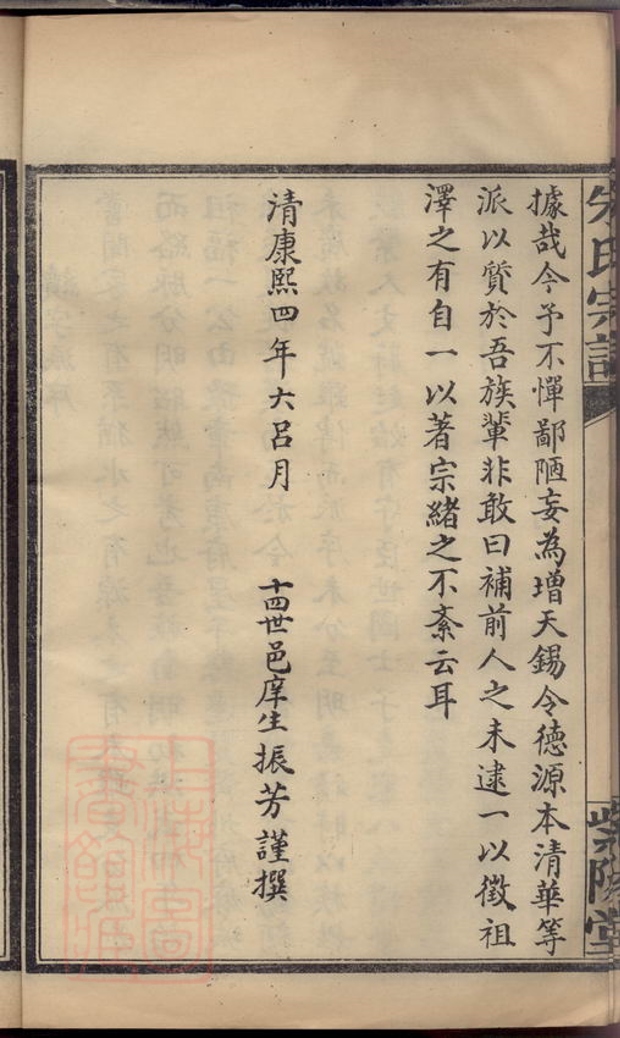 朱氏宗譜
紫陽堂
據哉今予不憚鄙陋妄為增天錫令德源本清華等
派以質於吾族輩非敢曰補前人之未逮一以徵祖
澤之有自一以著宗緒之不紊云耳
清康熙四年大呂月 十四世邑庠生振芳謹撰